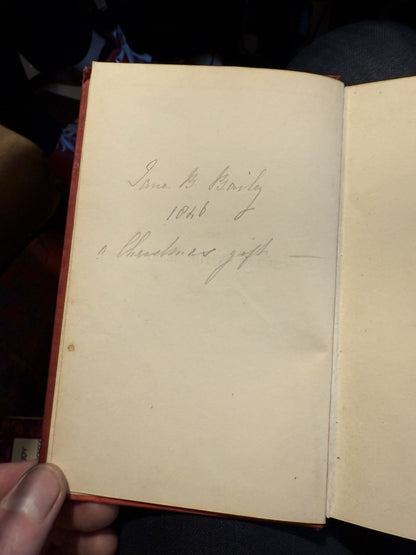 Jane B Baily
1846
a Christmas gift —
JOY